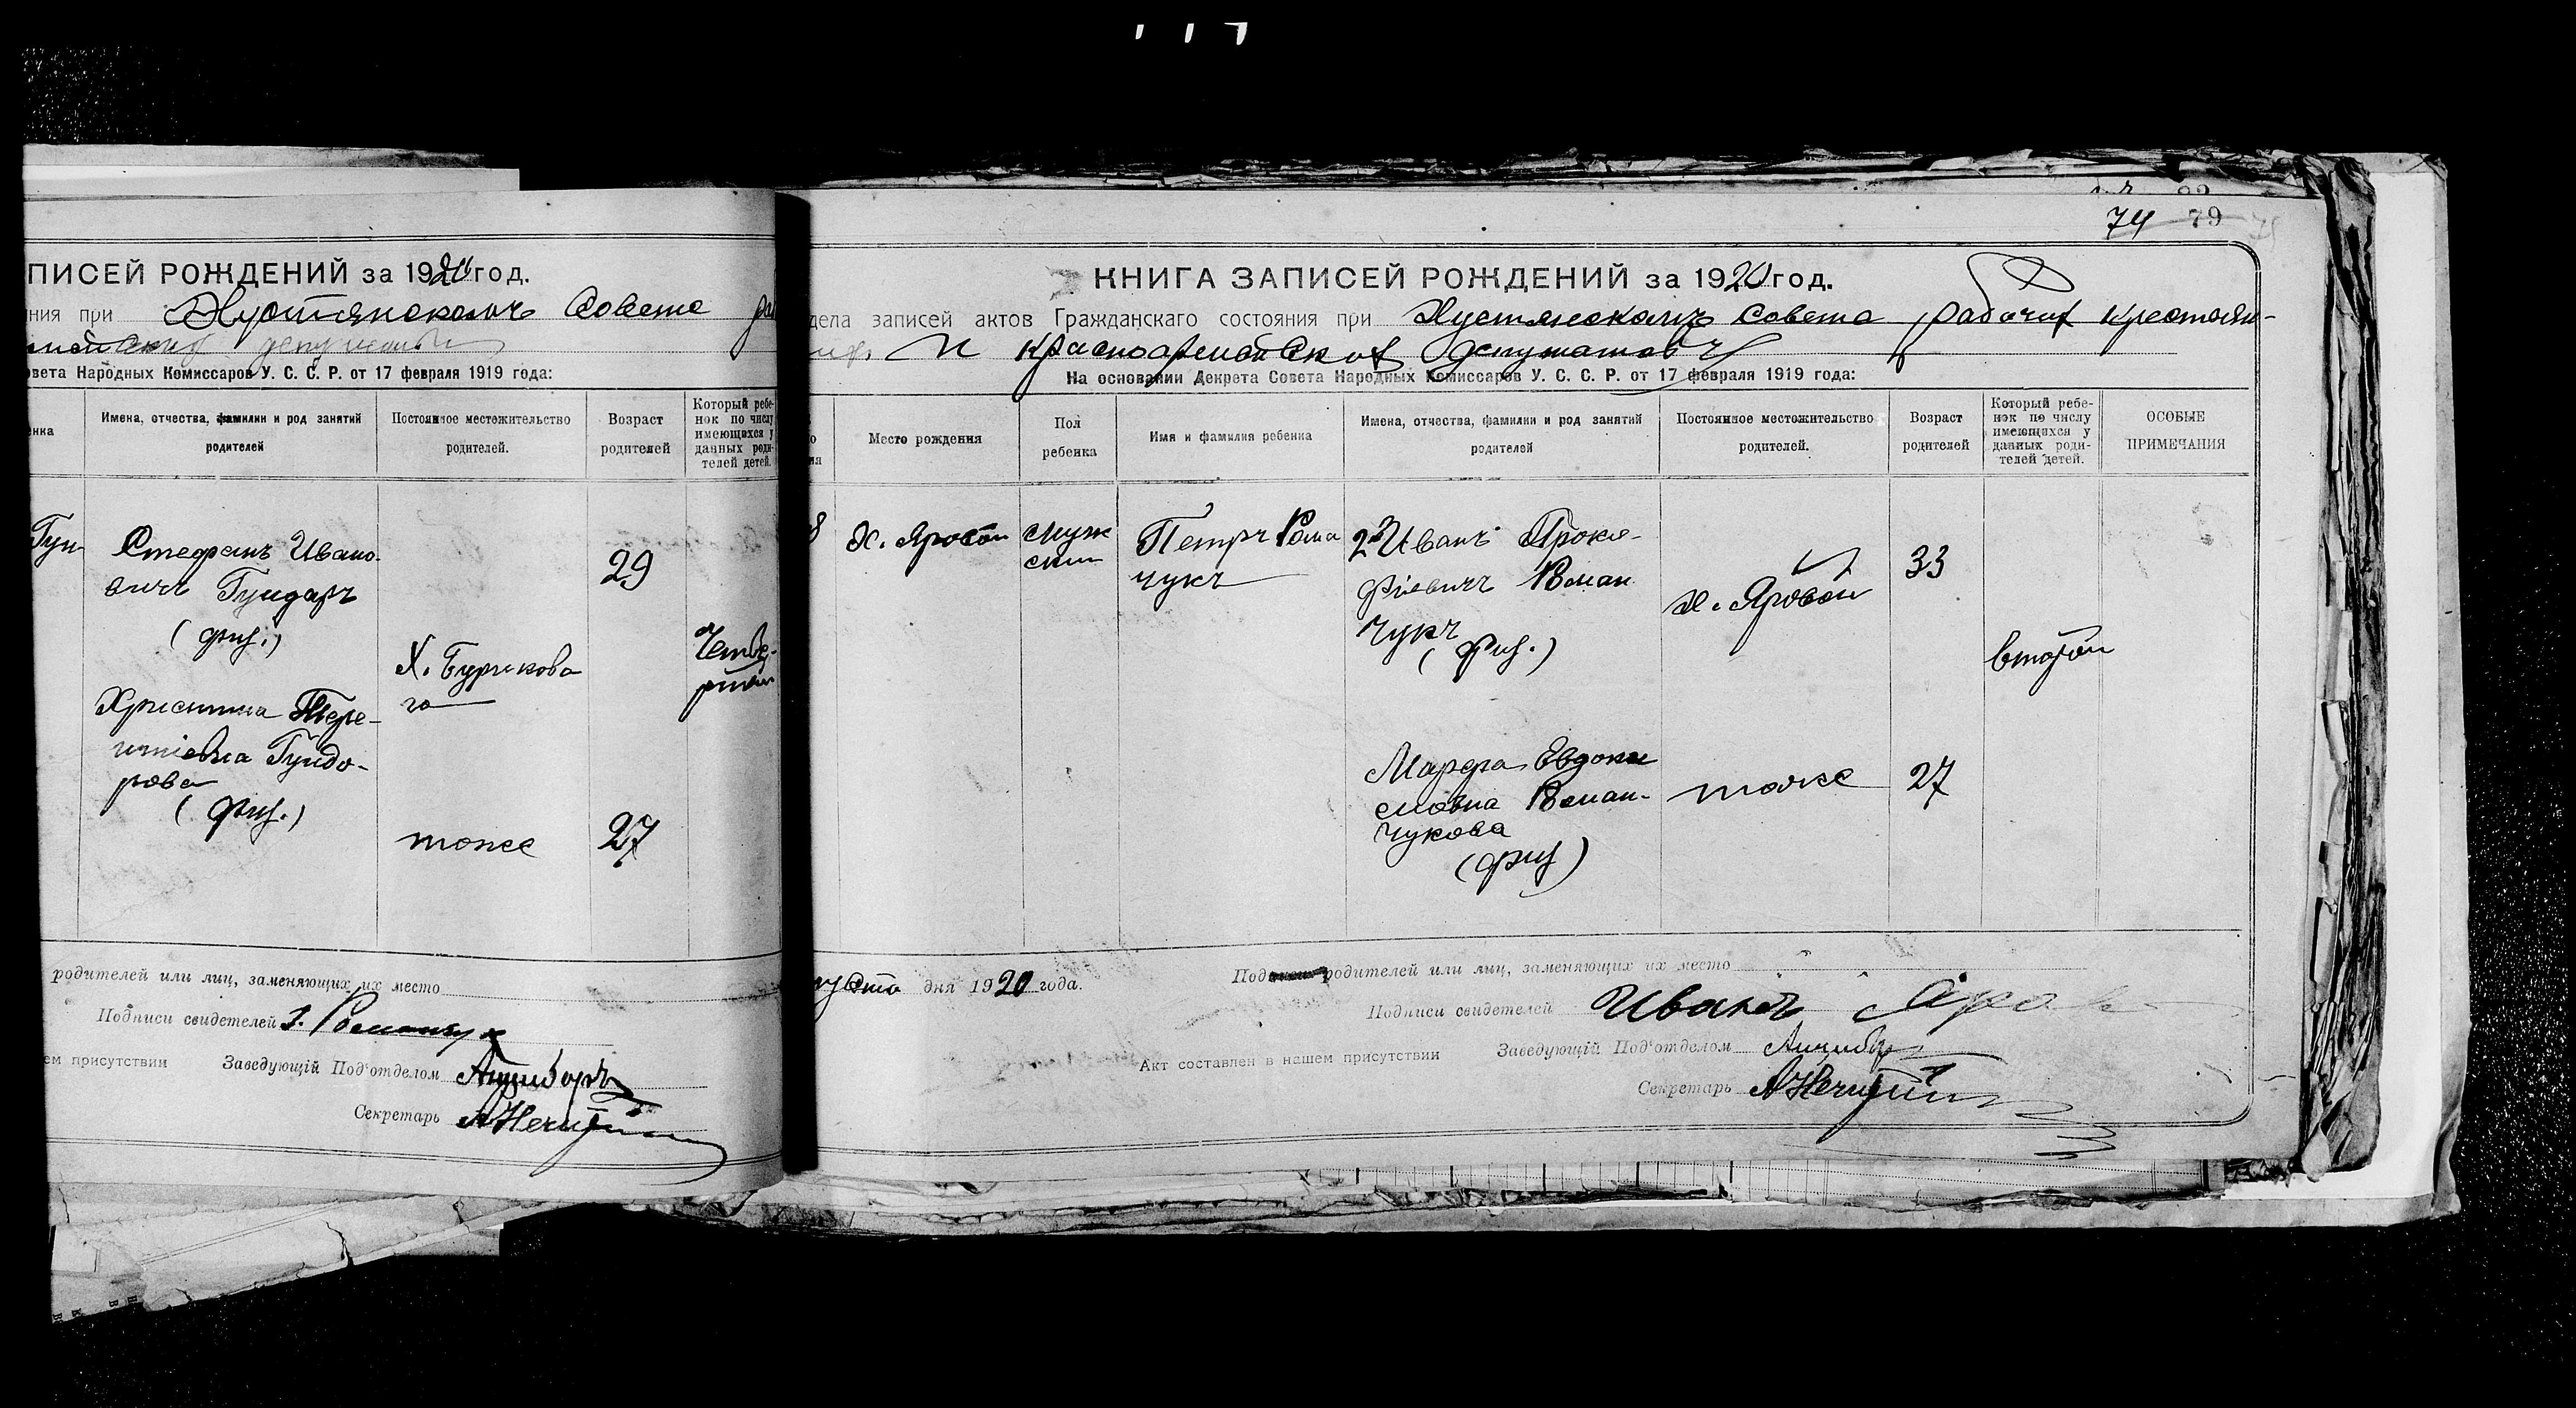 ПИСЕЙ РОЖДЕНИЙ за 1920 год.
ния при Хустянскомъ Совете
овета Народных Комиссаров У. С. С. Р. от 17 февраля 1919 года:
енка
Имена, отчества, фамилии и род занятий родителей
Постоянное местожительство родителей.
Возраст родителей
Который ребе-
нок по числу
имеющихся у
данных роди-
телей детей.
Гун-
Стефанъ Ивано-
вичъ Гундаръ
(физ.)
29
Х. Бурикова
го
Четве-
ртый
Христина Тере-
нтіевна Гундо-
рова
(физ.)
тоже
27
родителей или лиц, заменяющих их место
Подписи свидетелей
ем присутствии Заведующій Под'отделом
Секретарь
74 79
КНИГА ЗАПИСЕЙ РОЖДЕНИЙ за 1920 год.
дела записей актов Гражданскаго состояния при Хустянскомъ Совета рабочих крестьян-
и красноармейских депутатовъ
На основании Декрета Совета Народных Комиссаров У. С. С. Р. от 17 февраля 1919 года:
Место рождения
Пол ребенка
Имя и фамилия ребенка
Имена, отчества, фамилии и род занятий родителей
Постоянное местожительство родителей.
Возраст родителей
Который ребе-
нок по числу
имеющихся у
данных роди-
телей детей.
ОСОБЫЕ ПРИМЕЧАНИЯ
8
Х. Яровой
муж
ский
Петръ Рома
чукъ
Иванъ Проко-
фіевичъ Роман
чукъ
(физ.)
х. Яровой
33
второй
Марфа Евдоки
мовна Роман-
чукова
(физ)
тоже
27
густа дня 1920 года.
родителей или лиц, заменяющих их место
Подписи свидетелей Иванъ
Акт составлен в нашем присутствии Заведующій Под'отделом
Секретарь